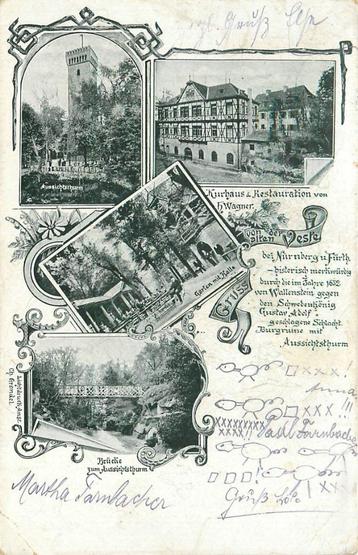 Gruß Else
Aussichtsthurm
Kurhaus & Restauration von
H. Wagner.
Gruss
von der
alten Veste
bei Nürnberg u. Fürth
historisch merkwürdig
durch die im Jahre 1632
von Wallenstein gegen
den Schwedenkönig
Gustav Adolf
geschlagene Schlacht.
Burgruine mit
Aussichtsthurm
Garten mit Halle
Brücke
zum Aussichtsthurm
Anna
xxx!
xxxxxxxxx
Paul Farnbacher
xxxxxx
Gruß
xxx
Martha Farnbacher